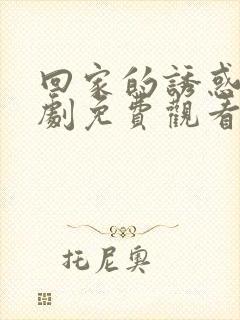 回家的誘惑
劇免費觀看
托尼奧